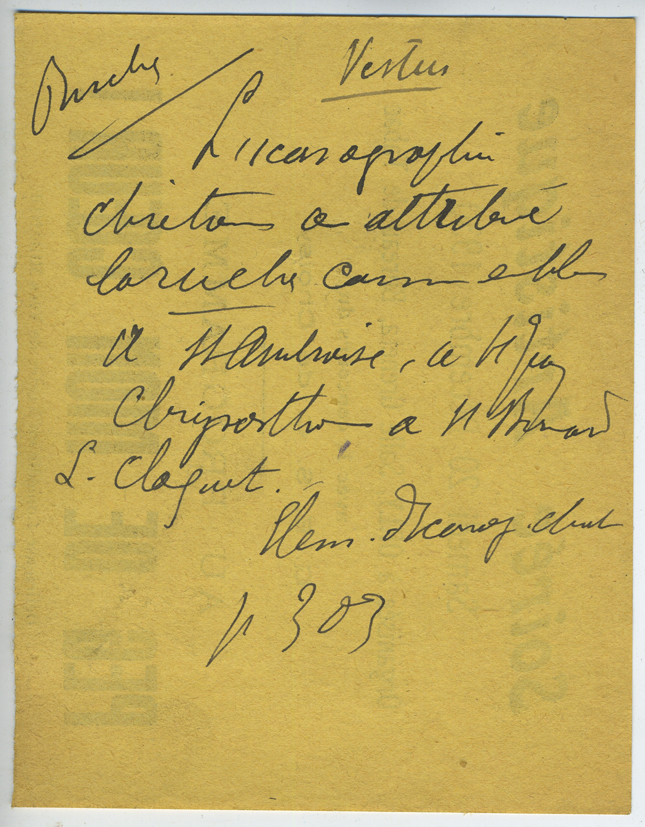 Ruche
Vertus
L'iconographie
chrétienne a attribué
la ruche comme emblème
à St Ambroise, à St Jean
Chrysosthome à St Bernard
L. Cloquet.
Elem. d'Iconog. chret
p 303